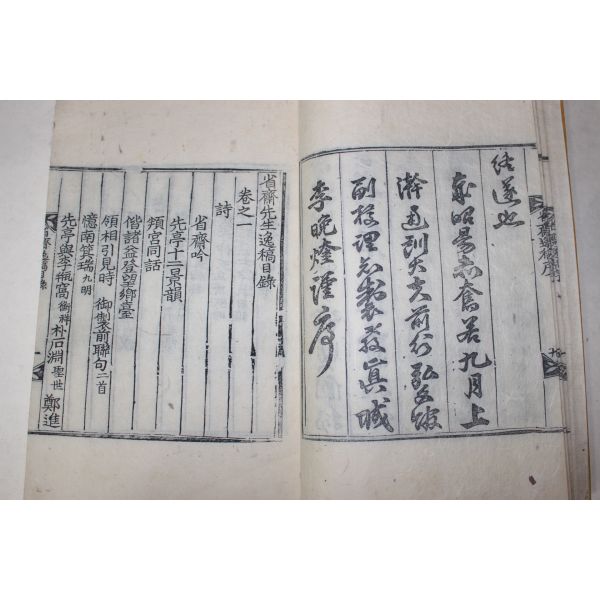 遂也
歲昭昜赤奮若九月上
澣通訓大夫前行弘文館
副校理知製敎眞城
李晩煃謹序
省齋先生逸稿目錄
卷之一
詩
省齋吟
先亭十二景韻
頖宮同話
偕諸益登望鄕臺
領相引見時 御製前聯句二首
憶南箕瑞九明
先亭與李甁窩衡祥朴石淵聖世鄭進
省齋逸稿目錄